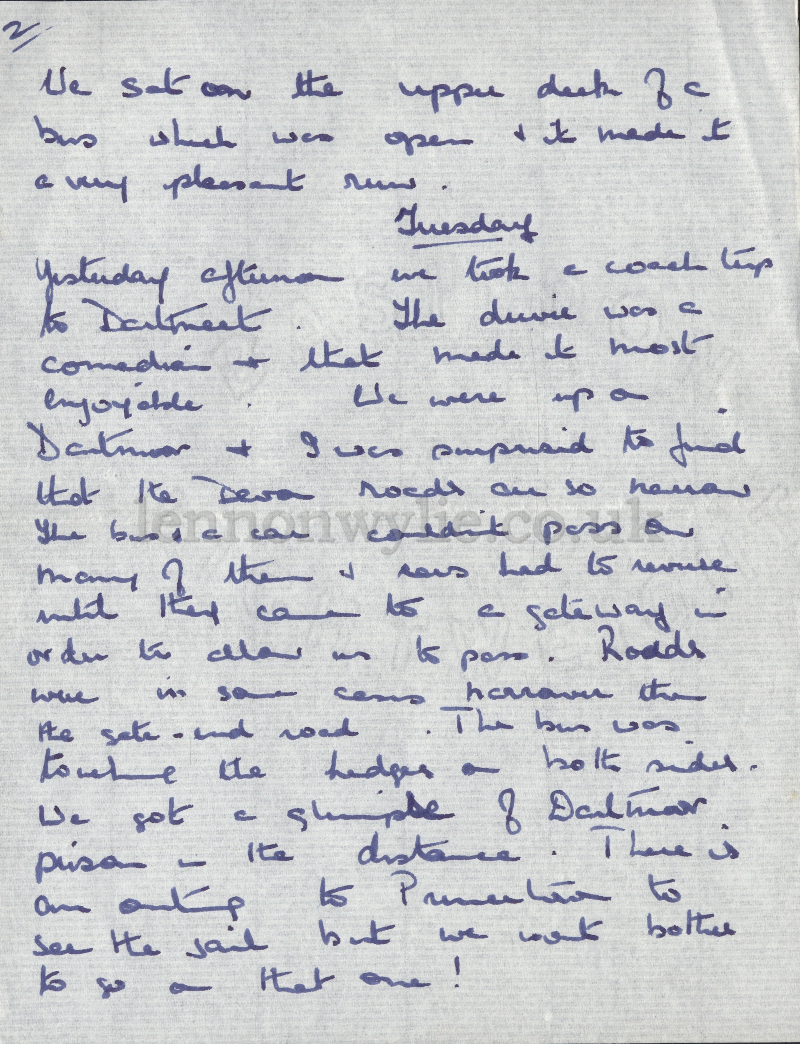 2
We sat on the upper deck of a
bus which was open & it made it
a very pleasant run.
Tuesday
Yesterday afternoon we took a coach trip
to Dartmeet. The driver was a
comedian & that made it most
enjoyable. We were up on
Dartmoor & I was surprised to find
that the Devon roads are so narrow
The bus & a car couldn't pass on
lennonwylie.co.uk
many of them & cars had to reverse
until they came to a gateway in
order to allow us to pass. Roads
were in some cases narrower than
the gate-end road. The bus was
touching the hedges on both sides.
We got a glimpse of Dartmoor
prison in the distance. There is
an outing to Princetown to
see the jail but we wont bother
to go on that one!